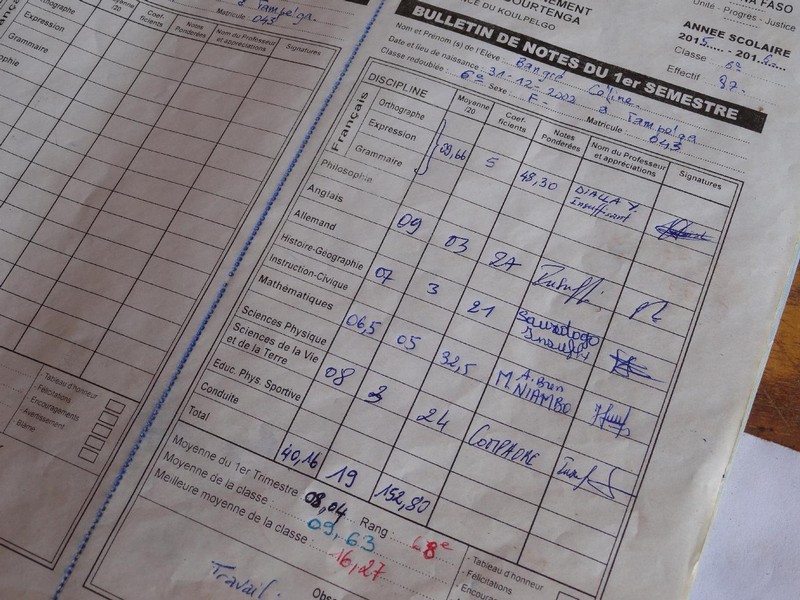 Tampelga.
Matricule : 043
Orthographe
Expression
Grammaire
Moyenne /20
Coef-ficients
Notes Pondérées
Nom du Professeur et appréciations
Signatures
Tableau d'honneur
- Félicitations
- Encouragements
- Avertissement
- Blâme
NA FASO
Unité - Progrès - Justice
CE DU KOULPELGO
BULLETIN DE NOTES DU 1er SEMESTRE
ANNEE SCOLAIRE
2015.....- 201
Classe : 6e
Effectif : 97.
Nom et Prénom (s) de l'Elève : Bangré Céline
Date et lieu de naissance : 31-12-2002 à Tampelga
Classe redoublée : 6e Sexe : F- Matricule : 043
DISCIPLINE
Moyenne /20
Coef-ficients
Notes Pondérées
Nom du Professeur et appréciations
Signatures
Français
Orthographe
Expression
Grammaire
09,66 5 48,30 DIALLA Y. Insuffisant
Philosophie
Anglais 09 03 27
Allemand
Histoire-Géographie 07 3 21 Sawadogo
Instruction-Civique
Mathématiques 06,5 05 32,5 M. NIAMBO
Sciences Physique
Sciences de la Vie et de la Terre 08 3 24 COMPAORE
Educ. Phys. Sportive
Conduite
Total 40,16 19 152,80
Moyenne du 1er Trimestre 08,04 Rang : 68e
Moyenne de la classe : 09,63
Meilleure moyenne de la classe : 16,27
Tableau d'honneur
- Félicitations
Travail.